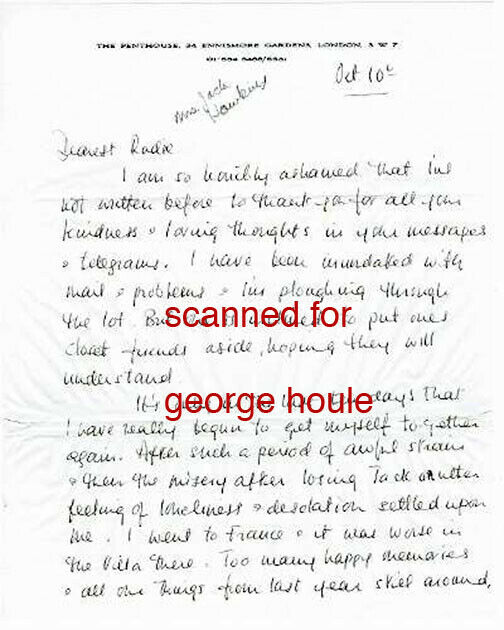 THE PENTHOUSE, 24 ENNISMORE GARDENS, LONDON, S W 7
Oct 10
Mrs. Jack
Hawkins
Dearest Radie
I am so horribly ashamed that I've
not written before to thank-you for all your
kindness & loving thoughts in your messages
& telegrams. I have been inundated with
mail & problems & I'm ploughing through
the lot. But one is inclined to put ones
closet friends aside, hoping they will
understand
scanned for
It's days that
george houle
I have really begun to get myself together
again. After such a period of awful strain
& then the misery after losing Jack
feeling of loneliness & desolation settled upon
me. I went to France & it was worse in
the villa there. Too many happy memories
& all our things from last year still around,